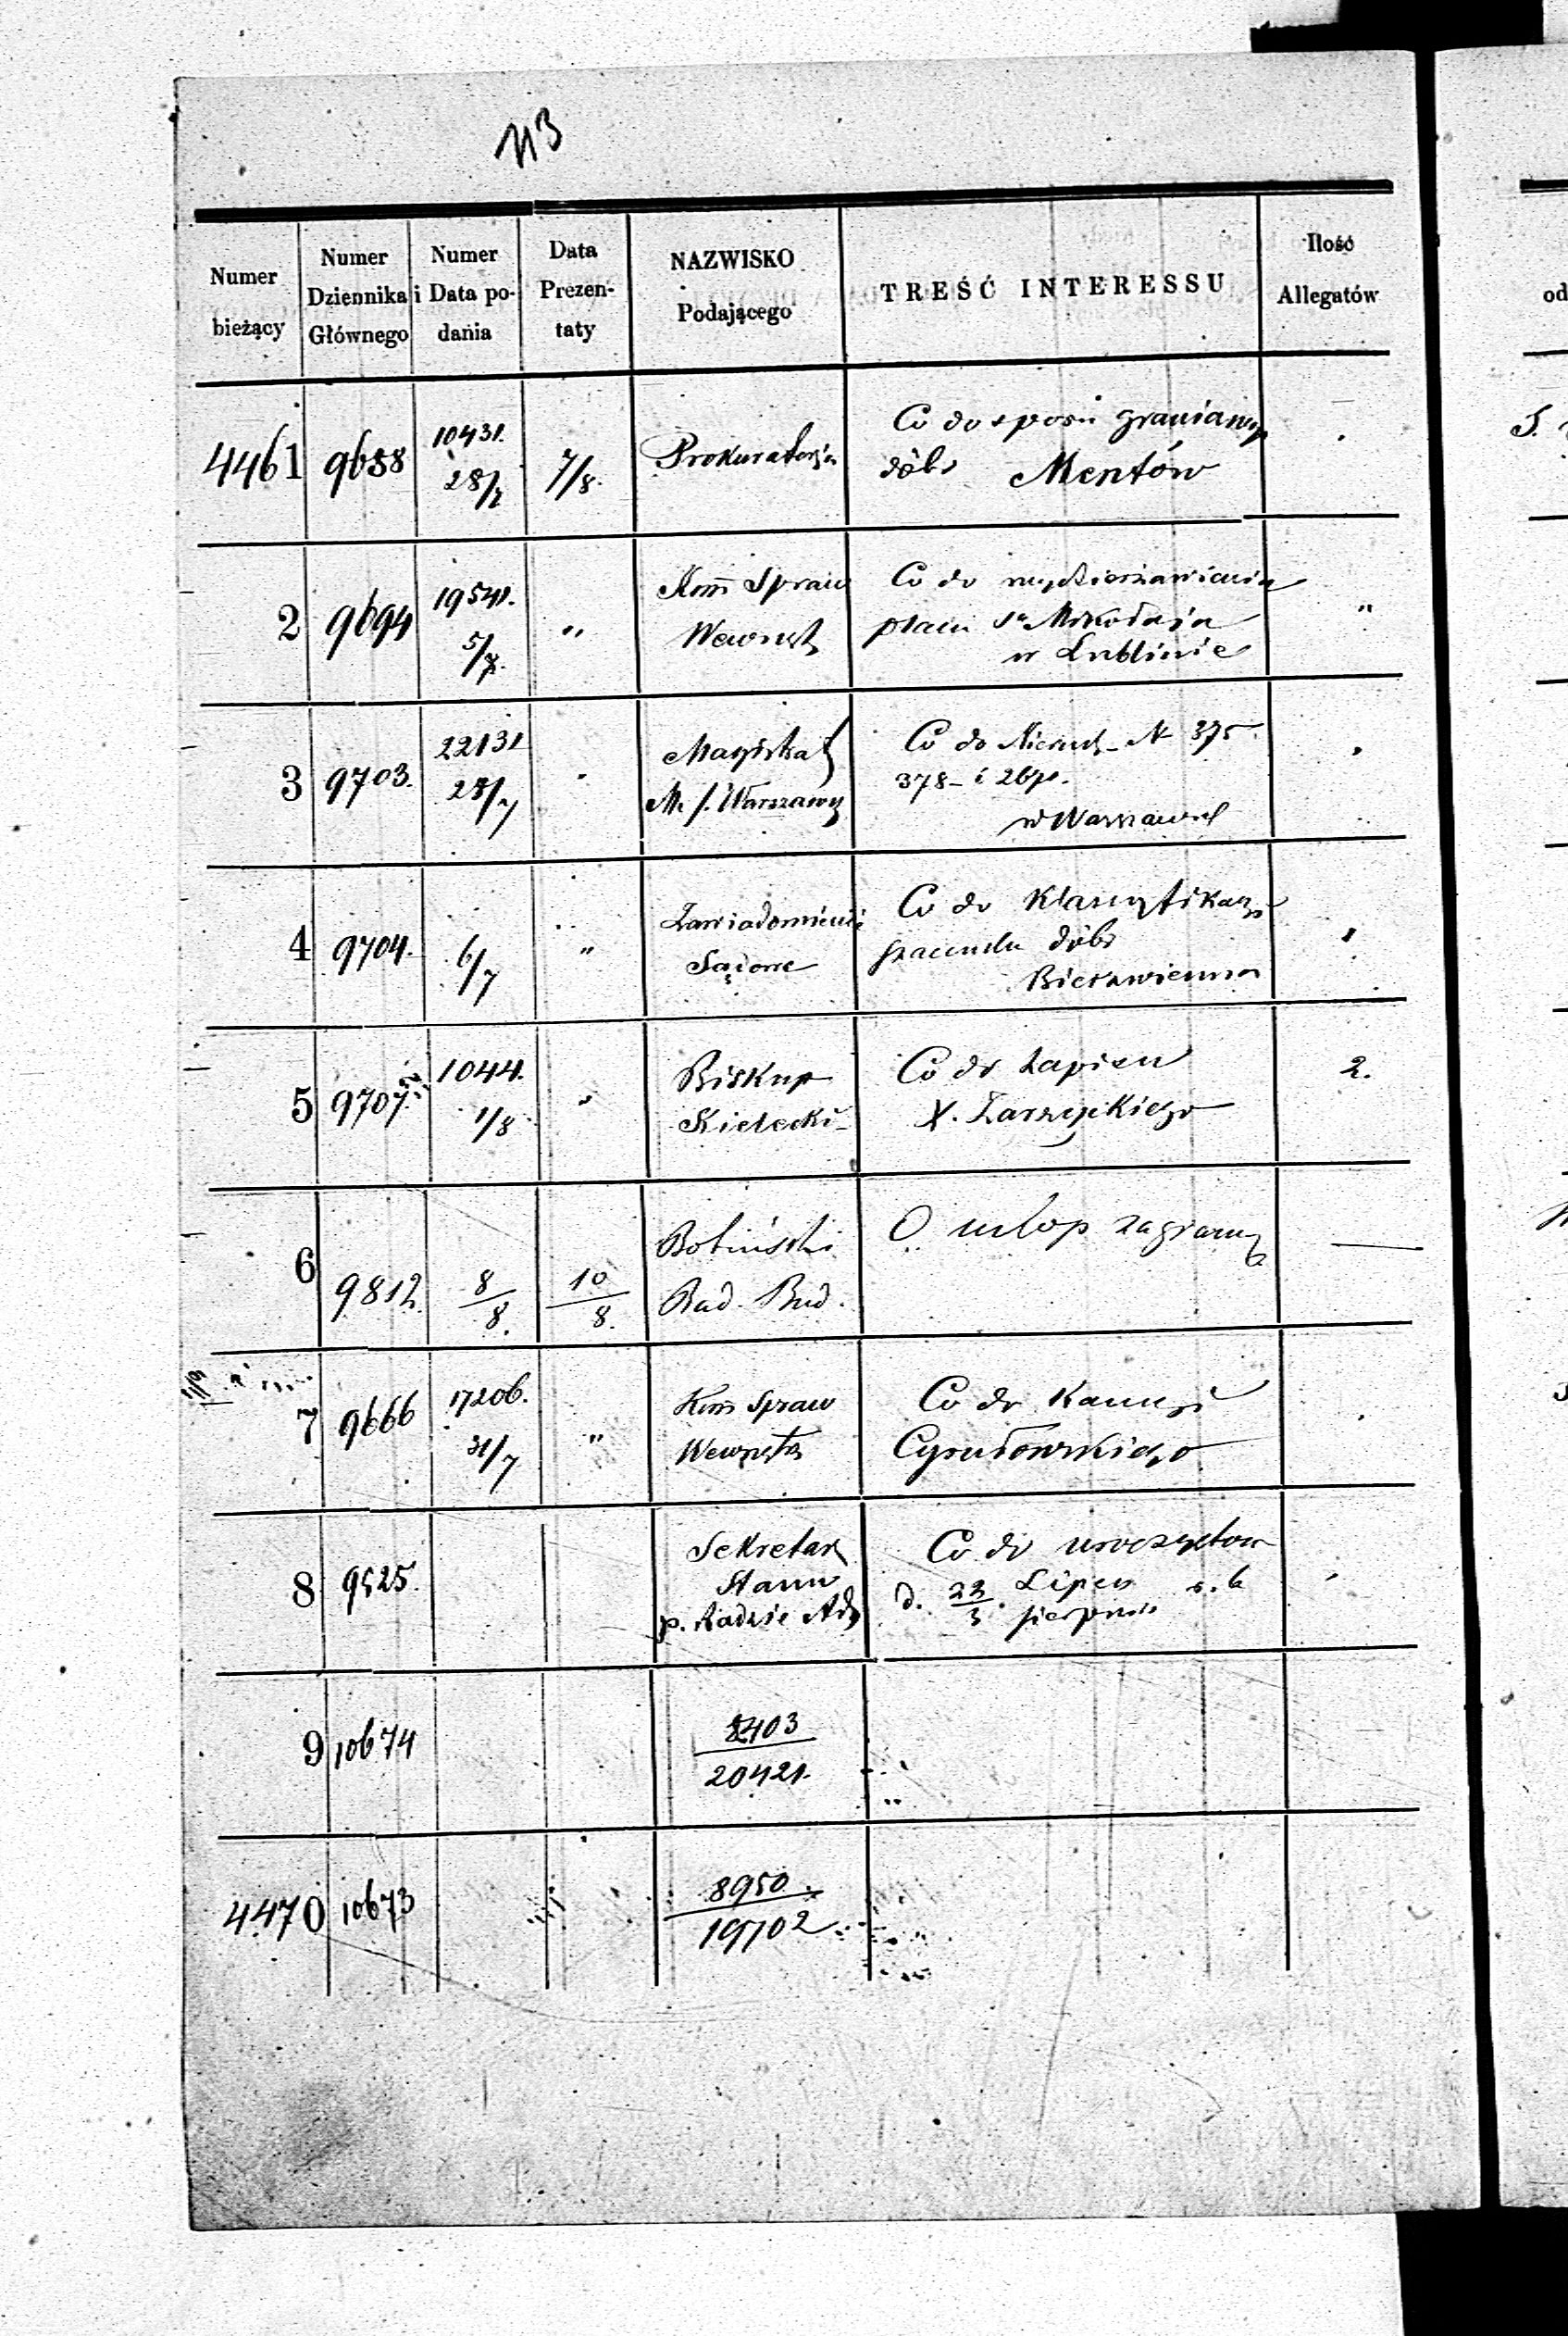 713
Numer bieżący
Numer Dziennika Głównego
Numer i Data podania
Data Prezentaty
NAZWISKO Podającego
TREŚĆ INTERESSU
Ilość Allegatów
4461 9688 10431. 28/7 7/8. Prokuratorja
Co do sporu graniczn
dóbr Mentów
2 9694 19541. 5/7. " Kom Spraw
Wewnęt
Co do wydzierżawienia
placu Sº Mikołaja
w Lublinie "
3 9703. 22131 28/7 Magistrat
M. S. Warszawy
Co do Nieruch. N 375
378 - i 267.
w Warszawie
4 9704. 6/7 " Zawiadomienie
Sądowe
Co do Klassyfikacyi
szacunku dóbr
Bierzwienna
5 9707. 1044. 1/8 " Biskup
Kielecki
Co do zapisu
X. Zarzyckiego 2.
6 9812. 8/8. 10/8. Botiński
Rad. Bud.
O urlop zagranicz
7 9666 17206. 31/7 " Kom Spraw
Wewnętz
Co do Kaucyi
Cysułowskiego
8 9525. Sekretarz
Stanu
p. Radzie Adm
Co do uroczystow
d. 22/3. Lipca r. b
sierpnia
9 10674 2403
20421.
4470 10673 8950.
19702